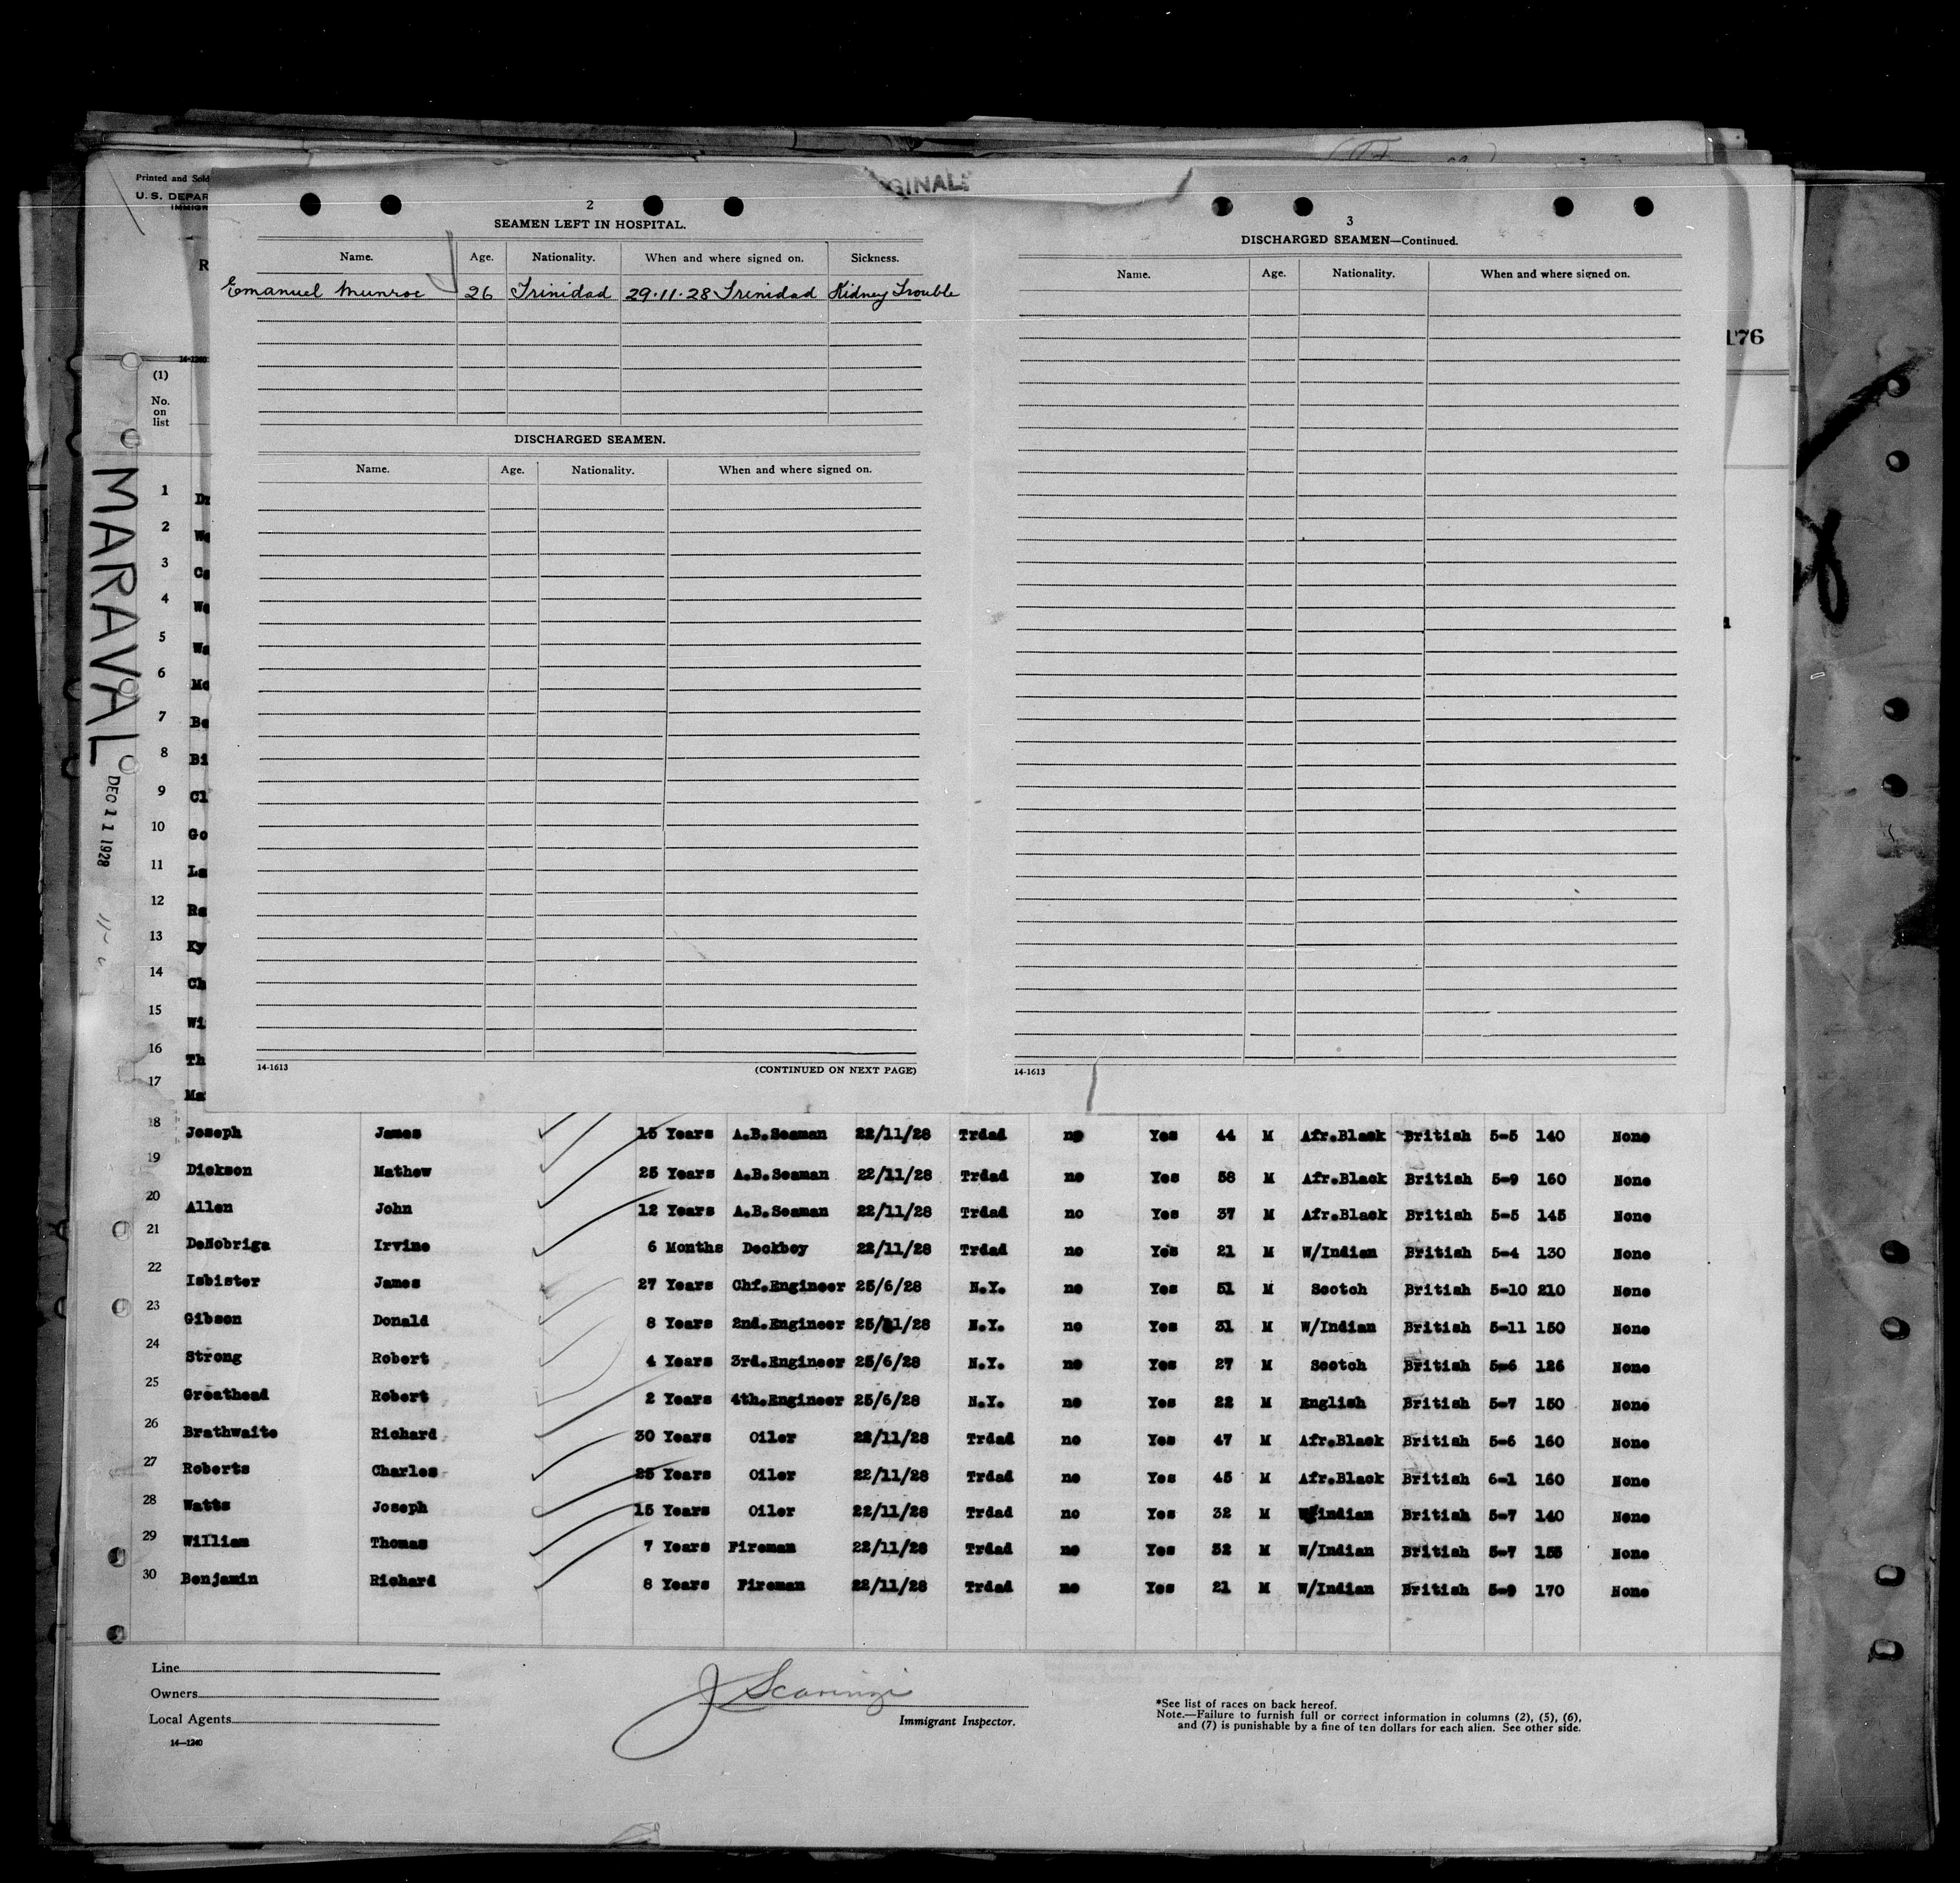 Printed and Sold
U. S. DEPAR
IMMIGR
R
GINAL
2
SEAMEN LEFT IN HOSPITAL.
Name. Age. Nationality. When and where signed on. Sickness.
Emanuel Munroe 26 Trinidad 29·11·28 Trinidad Kidney Trouble
DISCHARGED SEAMEN.
Name. Age. Nationality. When and where signed on.
14-1613 (CONTINUED ON NEXT PAGE)
3
DISCHARGED SEAMEN—Continued.
Name. Age. Nationality. When and where signed on.
14-1613
176
14-1240
(1)
No.
on
list
MARAVAL
DEC 11 1928
1
2 We
3 Ca
4 We
5 Wa
6 Mc
7 Be
8 Bi
9 Cl
10 Go
11 La
12 Re
13 Ky
14 Ch
15 Wi
16 Th
17 Ma
18 Joseph James 15 Years A.B.Seaman 22/11/28 Trdad no Yes 44 M Afr.Black British 5-5 140 None
19 Dickson Mathew 25 Years A.B.Seaman 22/11/28 Trdad no Yes 58 M Afr.Black British 5-9 160 None
20 Allen John 12 Years A.B.Seaman 22/11/28 Trdad no Yes 37 M Afr.Black British 5-5 145 None
21 DeNobriga Irvine 6 Months Deckboy 22/11/28 Trdad no Yes 21 M W/Indian British 5-4 130 None
22 Isbister James 27 Years Chf.Engineer 25/6/28 N.Y. no Yes 51 M Scotch British 5-10 210 None
23 Gibson Donald 8 Years 2nd.Engineer 25/11/28 N.Y. no Yes 31 M W/Indian British 5-11 150 None
24 Strong Robert 4 Years 3rd.Engineer 25/6/28 N.Y. no Yes 27 M Scotch British 5-6 126 None
25 Greathead Robert 2 Years 4th.Engineer 25/6/28 N.Y. no Yes 22 M English British 5-7 150 None
26 Brathwaite Richard 30 Years Oiler 22/11/28 Trdad no Yes 47 M Afr.Black British 5-6 160 None
27 Roberts Charles 25 Years Oiler 22/11/28 Trdad no Yes 45 M Afr.Black British 6-1 160 None
28 Watts Joseph 15 Years Oiler 22/11/28 Trdad no Yes 32 M W/indian British 5-7 140 None
29 William Thomas 7 Years Fireman 22/11/28 Trdad no Yes 32 M W/Indian British 5-7 155 None
30 Benjamin Richard 8 Years Fireman 22/11/28 Trdad no Yes 21 M W/Indian British 5-9 170 None
Line
Owners
Local Agents
14—1240
J Scarinzi
Immigrant Inspector.
*See list of races on back hereof.
Note.—Failure to furnish full or correct information in columns (2), (5), (6),
and (7) is punishable by a fine of ten dollars for each alien. See other side.